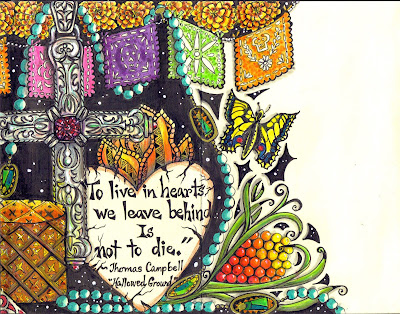 To live in hearts
we leave behind
Is
not to die."
~ Thomas Campbell
"Hallowed Ground"